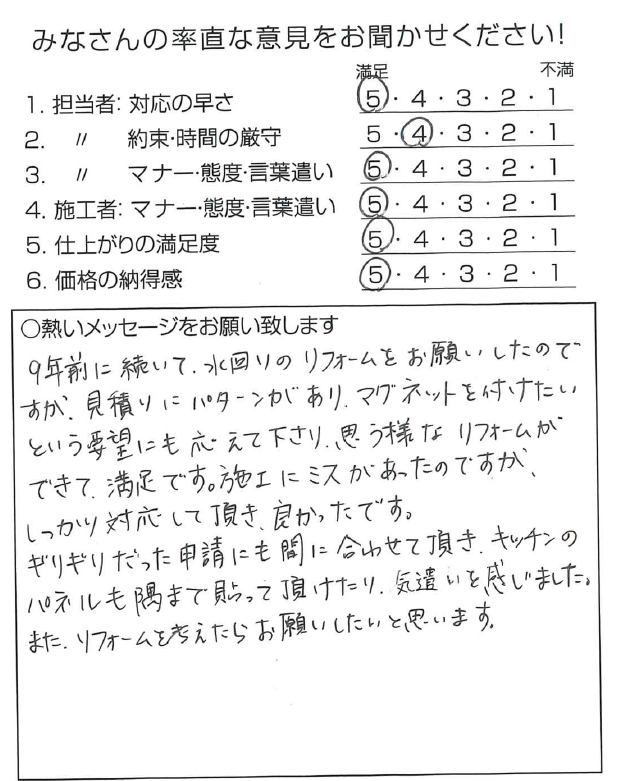 みなさんの率直な意見をお聞かせください!
満足 不満
1. 担当者: 対応の早さ 5・4・3・2・1
2. 〃 約束・時間の厳守 5・4・3・2・1
3. 〃 マナー・態度・言葉遣い 5・4・3・2・1
4. 施工者: マナー・態度・言葉遣い 5・4・3・2・1
5. 仕上がりの満足度 5・4・3・2・1
6. 価格の納得感 5・4・3・2・1
○熱いメッセージをお願い致します
9年前に続いて、水回りのリフォームをお願いしたので
すが、見積りにパターンがあり、マグネットを付けたい
という要望にも応えて下さり、思う様なリフォームが
できて、満足です。施工にミスがあったのですが、
しっかり対応して頂き、良かったです。
ギリギリだった申請にも間に合わせて頂き、キッチンの
パネルも隅まで貼って頂けたり、気遣いを感じました。
また、リフォームを考えたらお願いしたいと思います。